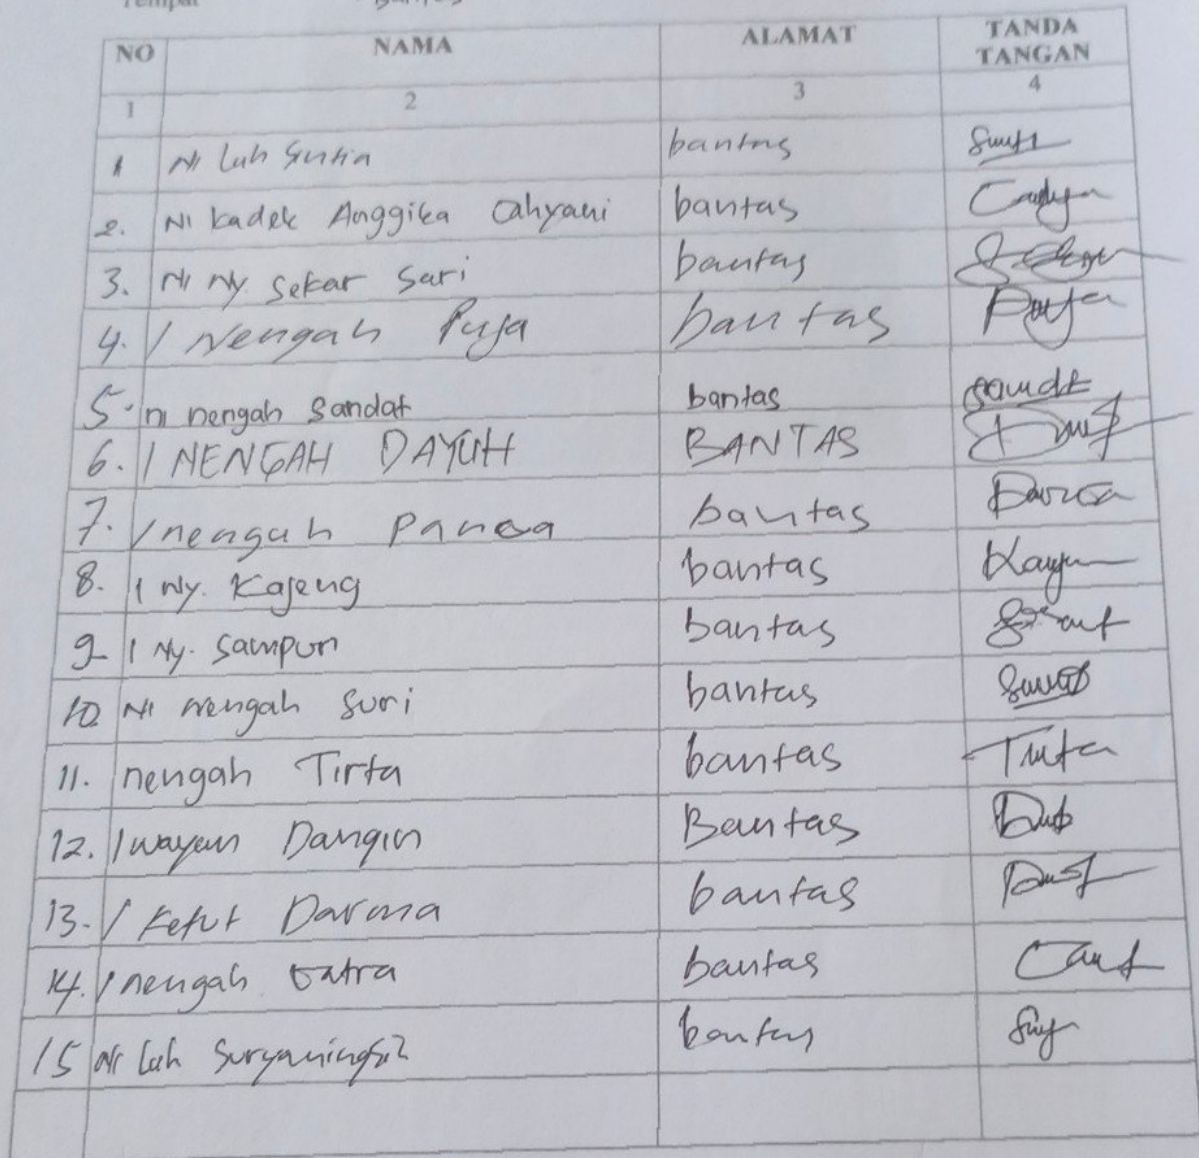 Tempat
NO NAMA ALAMAT TANDA TANGAN
1 2 3 4
1 Ni Luh bantas
2. Ni Kadek Anggika Cahyani bantas
3. Ni Ny. Sekar Sari bantas
4. I Nengah Puja bantas Puja
5. ni nengah Sandat bantas
6. I NENGAH DAYUH BANTAS
7. I nengah bantas
8. I Ny. Kajeng bantas
9 I Ny. Sampun bantas
10. Ni Nengah Suri bantas
11. nengah Tirta bantas Tirta
12. I wayan Dangin Bantas
13. I Ketut Darma bantas
14. I nengah bantas
15 Ni Luh Suryaningsih bantas